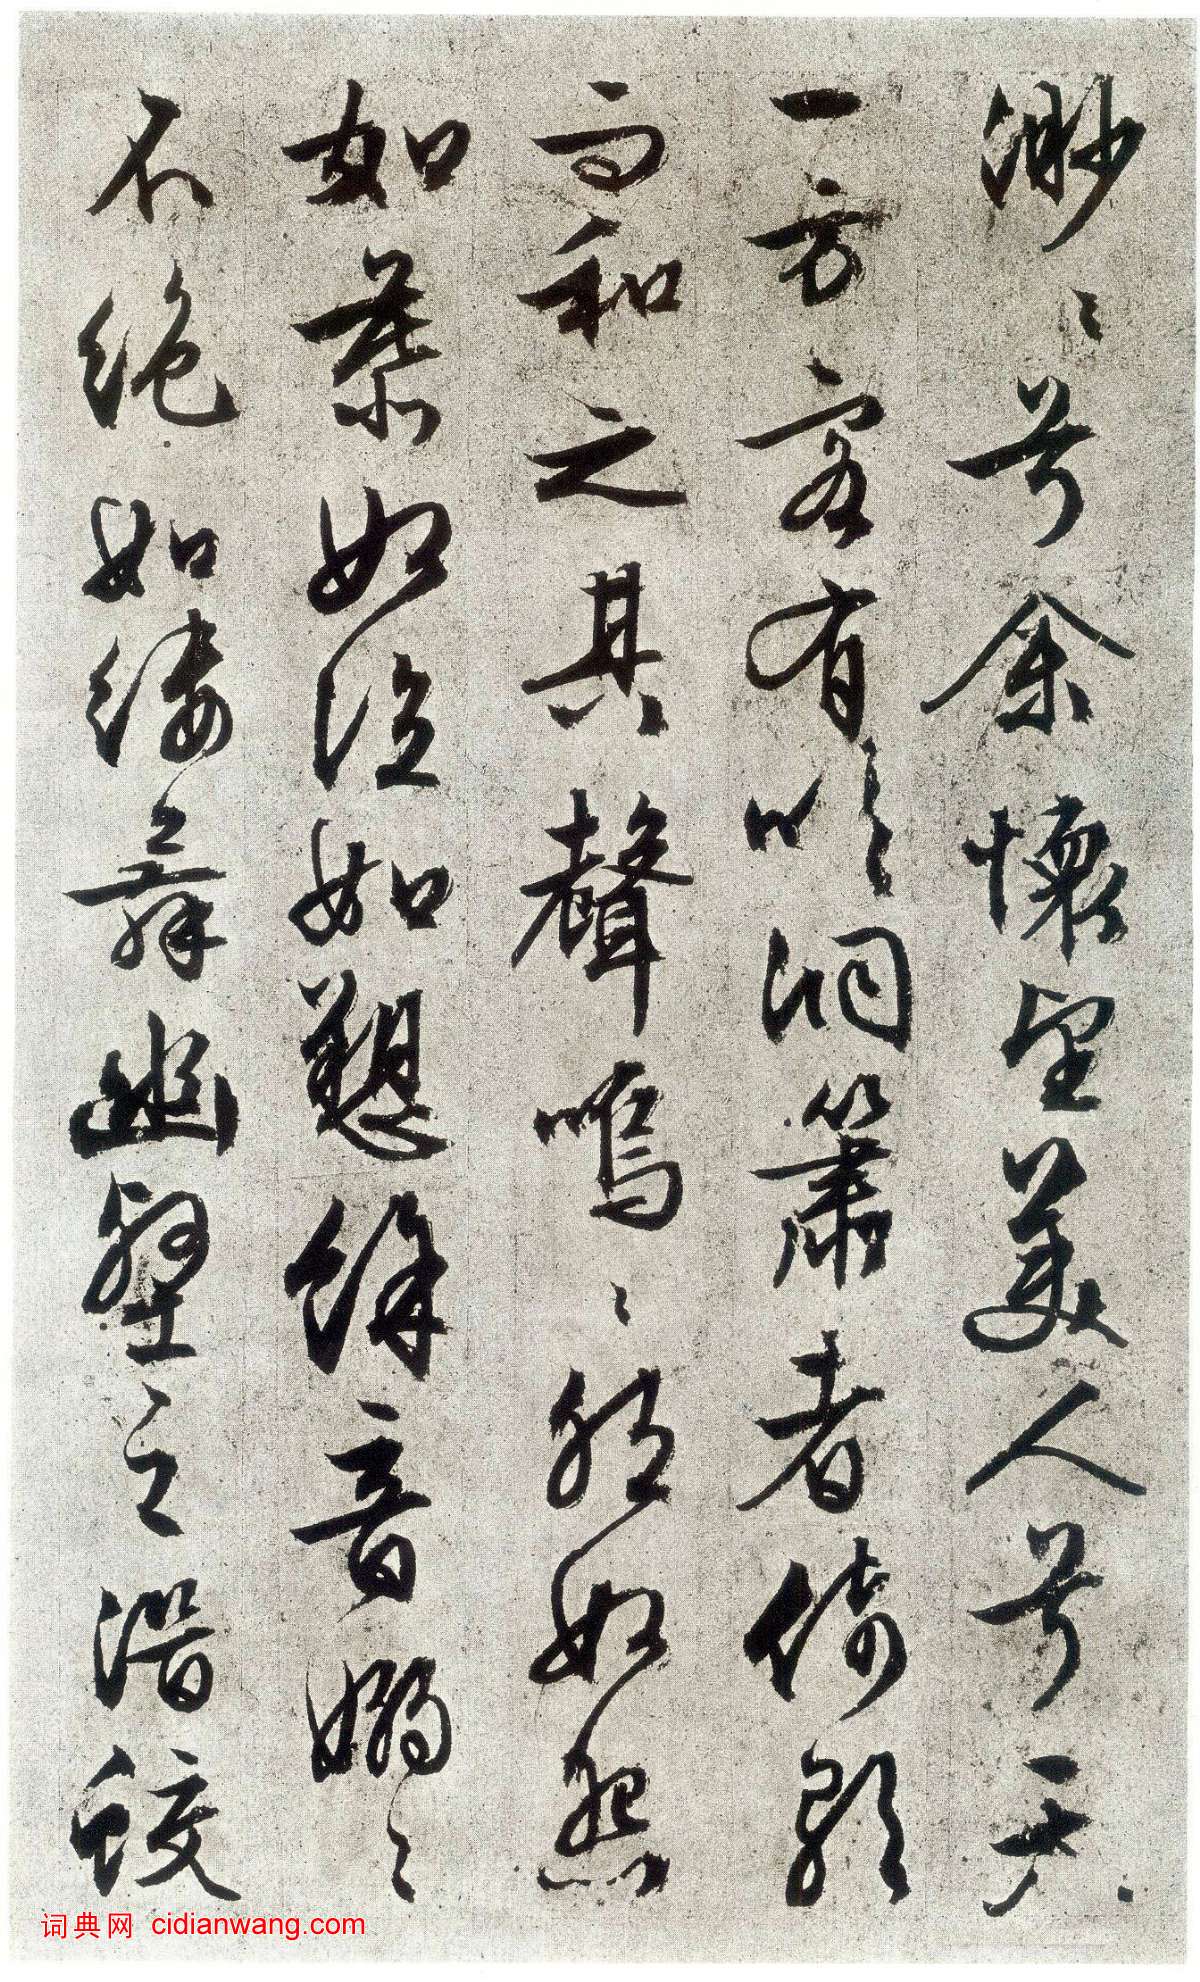 渺〻兮余懷望美人兮天
一方客有吹洞簫者倚歌
而和之其聲嗚〻然如怨
如慕如泣如愬餘音嫋〻
不絕如縷舞幽壑之潛蛟
词典网 cidianwang.com